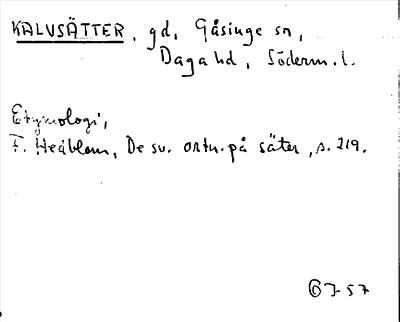 KALVSÄTTER, gd, Gåsinge sn,
Daga hd, Söderm. l.
Etymologi,
F. Hedblom, De sv. ortn. på säter, s. 219.
57